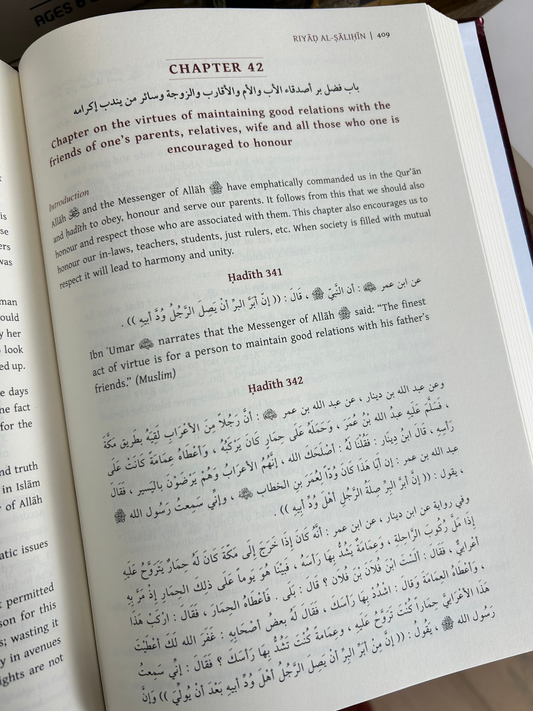 AGES 6 &
is
se
ers
was
man
ould
y her
look
ed up.
e days
he fact
for the
nd truth
in Islām
of Allāh
atic issues
t permitted
son for this
s; wasting it
y in avenues
ights are not
RIYĀḌ AL-ṢĀLIḤĪN | 409
CHAPTER 42
باب فضل بر أصدقاء الأب والأم والأقارب والزوجة وسائر من يندب إكرامه
Chapter on the virtues of maintaining good relations with the
friends of one's parents, relatives, wife and all those who one is
encouraged to honour
Introduction
Allāh ﷻ and the Messenger of Allāh ﷺ have emphatically commanded us in the Qur'ān
and ḥadīth to obey, honour and serve our parents. It follows from this that we should also
honour and respect those who are associated with them. This chapter also encourages us to
honour our in-laws, teachers, students, just rulers, etc. When society is filled with mutual
respect it will lead to harmony and unity.
Ḥadīth 341
عن ابن عمر : أن النَّبِيَّ ﷺ ، قَالَ : (( إنَّ أَبَرَّ البِرِّ أنْ يَصِلَ الرَّجُلُ وُدَّ أَبِيهِ )) .
Ibn 'Umar narrates that the Messenger of Allāh ﷺ said: "The finest
act of virtue is for a person to maintain good relations with his father's
friends." (Muslim)
Ḥadīth 342
وعن عبد الله بن دينار ، عن عبد الله بن عمر : أنَّ رَجُلاً مِنَ الأعْرَابِ لَقِيَهُ بطَرِيق مَكَّةَ
، فَسَلَّمَ عَلَيهِ عبدُ الله بْنُ عُمَرَ ، وَحَمَلَهُ عَلَى حِمَارٍ كَانَ يَرْكَبُهُ ، وَأعْطَاهُ عِمَامَةً كَانَتْ عَلَى
رَأسِهِ ، قَالَ ابنُ دِينَار : فَقُلْنَا لَهُ : أصْلَحَكَ الله ، إنَّهُمُ الأعرَابُ وَهُمْ يَرْضَوْنَ باليَسير ، فَقَالَ
عبد الله بن عمر : إن أبَا هَذَا كَانَ وُدّاً لِعُمَرَ بنِ الخطاب ، وإنِّي سَمِعتُ رَسُول الله ﷺ
، يقول : (( إنَّ أبرَّ البِرِّ صِلَةُ الرَّجُلِ أهْلَ وُدِّ أبِيهِ )) .
وفي رواية عن ابن دينار ، عن ابن عمر : أنَّهُ كَانَ إذَا خَرَجَ إلَى مَكّةَ كَانَ لَهُ حِمَارٌ يَتَرَوَّحُ عَلَيهِ
إذَا مَلَّ رُكُوبَ الرَّاحِلةِ ، وَعِمَامَةٌ يَشُدُّ بِهَا رَأسَهُ ، فَبيْنَا هُوَ يَوماً عَلَى ذلِكَ الحِمَارِ إذْ مَرَّ بِهِ
أعْرابيٌّ ، فَقَالَ : ألَسْتَ ابن فُلاَن بْنَ فُلاَن ؟ قَالَ : بَلَى . فَأعْطَاهُ الحِمَارَ ، فَقَالَ : ارْكَبْ هَذَا
، وَأعْطَاهُ العِمَامَةَ وَقالَ : اشْدُدْ بِهَا رَأسَكَ ، فَقَالَ لَهُ بعضُ أصْحَابِهِ : غَفَرَ الله لَكَ أعْطَيْتَ
هَذَا الأعْرَابيَّ حِمَاراً كُنْتَ تَرَوَّحُ عَلَيهِ ، وعِمَامةً كُنْتَ تَشُدُّ بِهَا رَأسَكَ ؟ فَقَالَ : إنِّي سَمِعتُ
رَسُول الله ﷺ ، يَقُولُ : (( إنَّ مِنْ أَبَرِّ البِرِّ أنْ يَصِلَ الرَّجُلُ أهْلَ وُدِّ أبيهِ بَعْدَ أنْ يُولِّيَ )) وَإنَّ